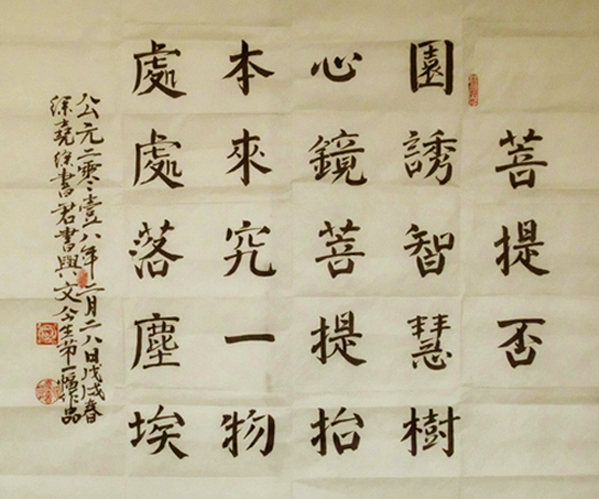 菩提否
園誘智慧樹
心鏡菩提抬
本來究一物
處處落塵埃
公元二零壹八年二月二八日戊戌春
徐堯徐書君書興文公生第一幅作品